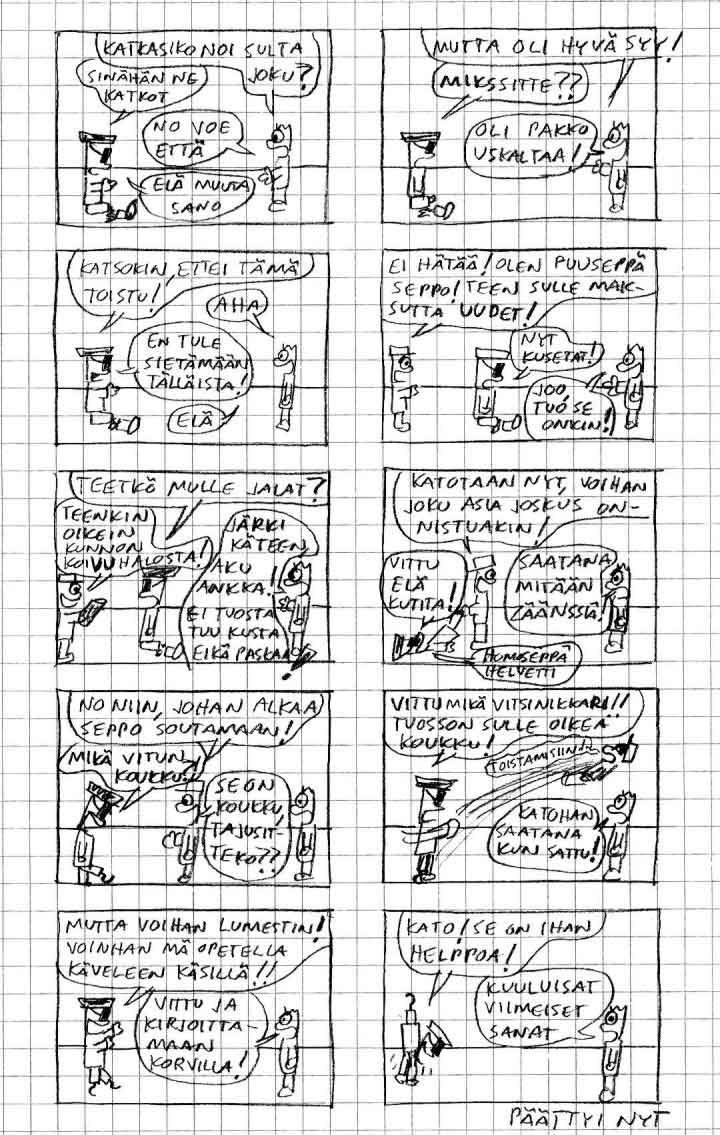 KATKASIKO NOI SULTA
JOKU?
SINÄHÄN NE
KATKOT
NO VOE
ETTÄ
ELÄ MUUTA
SANO
MUTTA OLI HYVÄ SYY!
MIKSSITTE??
OLI PAKKO
USKALTAA!
KATSOKIN, ETTEI TÄMÄ
TOISTU!
AHA
EN TULE
SIETÄMÄÄN
TÄLLÄISTA!
ELÄ
EI HÄTÄÄ! OLEN PUUSEPPÄ
SEPPO! TEEN SULLE MAK-
SUTTA UUDET!
NYT
KUSETAT!
JOO,
TUO SE
ONKIN!
TEETKÖ MULLE JALAT?
TEENKIN
OIKEIN
KUNNON
KOIVUHALOSTA!
JÄRKI
KÄTEEN,
AKU
ANKKA!
EI TUOSTA
TUU KUSTA
EIKÄ PASKAA!
KATOTAAN NYT, VOIHAN
JOKU ASIA JOSKUS ON-
NISTUAKIN!
VITTU
ELÄ
KUTITA!
SAATANA
MITÄÄN
ZÄÄNSSIÄ!
HOMOSEPPÄ
HELVETTI
NO NIIN, JOHAN ALKAA
SEPPO SOUTAMAAN!
MIKÄ VITUN
KOUKKU!
SE ON
KOUKKU,
TAJUSIT-
TEKO??
VITTU MIKÄ VITSINIKKARI!!
TUOSSON SULLE OIKEA
KOUKKU!
TOISTAMISIIN!!
KATOHAN
SAATANA
KUN SATTU!
MUTTA VOIHAN LUMESTIN!
VOINHAN MÄ OPETELLA
KÄVELEEN KÄSILLÄ!!
VITTU JA
KIRJOITTA-
MAAN
KORVILLA!
KATO! SE ON IHAN
HELPPOA!
KUULUISAT
VIIMEISET
SANAT
PÄÄTTYI NYT